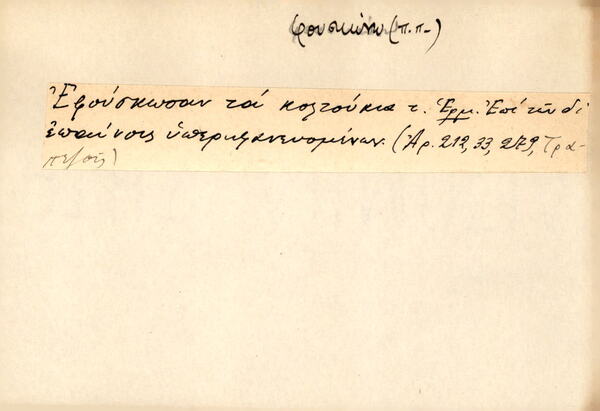 φουσκώνω (π.π-)
Ἐφούσκωσαν τά κολτούκια τ. Ἑρμ. Ἐπί τῶν δι
ἐπαίνους ὑπερηφανευομένων. (Ἀρ. 212, 33, 279, Τρα-
πεζοῦς)